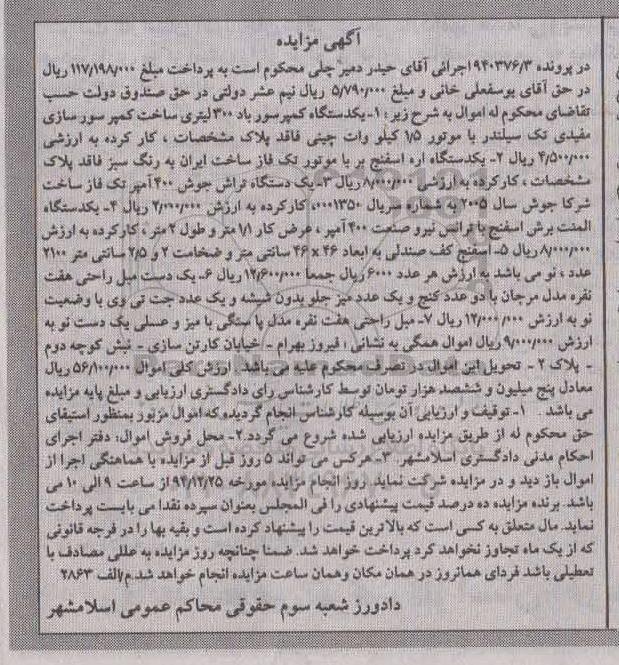 آگهی مزایده
در پرونده ۹۴۰۳۷۶/۳ اجرائی آقای حیدر دمیر چلی محکوم است به پرداخت مبلغ ۱۱۷/۱۹۸/۰۰۰ ریال
در حق آقای یوسفعلی خانی و مبلغ ۵/۷۹۰/۰۰۰ ریال نیم عشر دولتی در حق صندوق دولت حسب
تقاضای محکوم له اموال به شرح زیر: ۱- یکدستگاه کمپرسور باد ۳۰۰ لیتری ساخت کمپر سور سازی
مفیدی تک سیلندر با موتور ۱/۵ کیلو وات چینی فاقد پلاک مشخصات ، کار کرده به ارزشی
۴/۵۰۰/۰۰۰ ریال ۲- یکدستگاه اره اسفنج بر با موتور تک فاز ساخت ایران به رنگ سبز فاقد پلاک
مشخصات ، کارکرده به ارزشی ۸/۰۰۰/۰۰۰ ریال ۳- یک دستگاه تراش جوش ۴۰۰ آمپر تک فاز ساخت
شرکا جوش سال ۲۰۰۵ به شماره سریال ۰۰۰۱۳۵۰، کارکرده به ارزش ۲/۰۰۰/۰۰۰ ریال ۴- یکدستگاه
المنت برش اسفنج با ترانس نیرو صنعت ۴۰۰ آمپر ، عرض کار ۱/۱ متر و طول ۲ متر ، کارکرده به ارزش
۸/۰۰۰/۰۰۰ ریال ۵- اسفنج کف صندلی به ابعاد ۴۶ x ۴۶ سانتی متر و ضخامت ۲ و ۲/۵ سانتی متر ۲۱۰۰
عدد ، نو می باشد به ارزش هر عدد ۶۰۰۰ ریال جمعا ۱۲/۶۰۰/۰۰۰ ریال ۶- یک دست مبل راحتی هفت
نفره مدل مرجان با دو عدد کنج و یک عدد میز جلو بدون شیشه و یک عدد جت تی وی با وضعیت
نو به ارزش ۱۲/۰۰۰/۰۰۰ ریال ۷- مبل راحتی هفت نفره مدل پا سنگی با میز و عسلی یک دست نو به
ارزش ۹/۰۰۰/۰۰۰ ریال اموال همگی به نشانی : فیروز بهرام - خیابان کارتن سازی - نبش کوچه دوم
- پلاک ۲ - تحویل این اموال در تصرف محکوم علیه می باشد . ارزش کلی اموال ۵۶/۱۰۰/۰۰۰ ریال
معادل پنج میلیون و ششصد هزار تومان توسط کارشناس رای دادگستری ارزیابی و مبلغ پایه مزایده
می باشد . ۱- توقیف و ارزیابی آن بوسیله کارشناس انجام گردیده که اموال مزبور بمنظور استیفای
حق محکوم له از طریق مزایده ارزیابی شده شروع می گردد. ۲- محل فروش اموال: دفتر اجرای
احکام مدنی دادگستری اسلامشهر. ۳- هرکس می تواند ۵ روز قبل از مزایده با هماهنگی اجرا از
اموال باز دید و در مزایده شرکت نماید. روز انجام مزایده مورخه ۹۴/۱۲/۲۵ از ساعت ۹ الی ۱۰ می
باشد. برنده مزایده ده درصد قیمت پیشنهادی را فی المجلس بعنوان سپرده نقدا می بایست پرداخت
نماید. مال متعلق به کسی است که بالاترین قیمت را پیشنهاد کرده است و بقیه بها را در فرجه قانونی
که از یک ماه تجاوز نخواهد کرد پرداخت خواهد شد. ضمنا چنانچه روز مزایده به عللی مصادف با
تعطیلی باشد فردای همانروز در همان مکان وهمان ساعت مزایده انجام خواهد شد.م/الف ۲۸۶۳
دادورز شعبه سوم حقوقی محاکم عمومی اسلامشهر